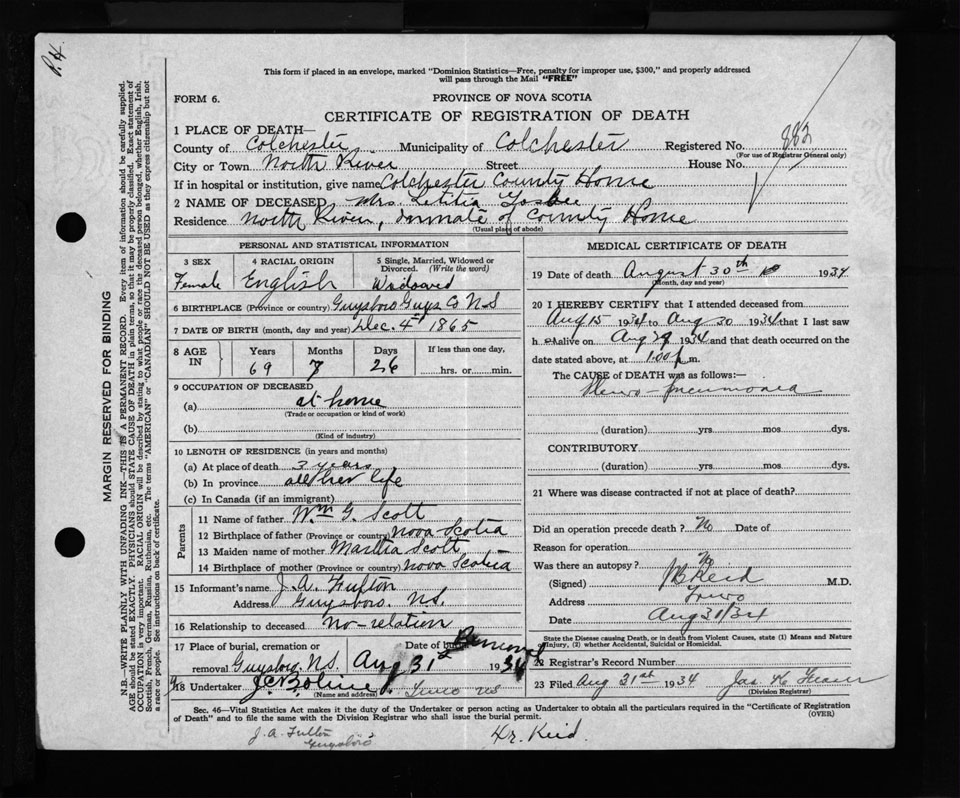 P.H.
This form if placed in an envelope, marked "Dominion Statistics—Free, penalty for improper use, $300," and properly addressed
will pass through the Mail "FREE"
FORM 6.
PROVINCE OF NOVA SCOTIA
CERTIFICATE OF REGISTRATION OF DEATH
1 PLACE OF DEATH—
County of Colchester Municipality of Colchester Registered No. 883
(For use of Registrar General only)
City or Town North River Street House No.
If in hospital or institution, give name Colchester County Home
2 NAME OF DECEASED Mrs. Letitia
Residence North River, Inmate of County Home
(Usual place of abode)
PERSONAL AND STATISTICAL INFORMATION
3 SEX 4 RACIAL ORIGIN 5 Single, Married, Widowed or
Divorced. (Write the word)
Female English Widowed
6 BIRTHPLACE (Province or country) Guysboro Guys Co N.S
7 DATE OF BIRTH (month, day and year) Dec. 4th 1865
8 AGE IN Years Months Days If less than one day,
69 26 hrs. or min.
9 OCCUPATION OF DECEASED
(a) at home
(Trade or occupation or kind of work)
(b)
(Kind of industry)
10 LENGTH OF RESIDENCE (in years and months)
(a) At place of death 3 years
(b) In province all her life
(c) In Canada (if an immigrant)
Parents
11 Name of father Wm G. Scott
12 Birthplace of father (Province or country) Nova Scotia
13 Maiden name of mother Martha Scott
14 Birthplace of mother (Province or country) Nova Scotia
15 Informant's name J. A. Fulton
Address Guysboro. N.S.
16 Relationship to deceased no-relation
17 Place of burial, cremation or Date of burial Removal
removal Guysboro. N.S. Aug 31st 1934
18 Undertaker Truro NS
(Name and address)
MEDICAL CERTIFICATE OF DEATH
19 Date of death August 30th 1934
(Month, day and year)
20 I HEREBY CERTIFY that I attended deceased from
Aug 15 1934 to Aug 30 1934 that I last saw
h er alive on Aug 29 1934 and that death occurred on the
date stated above, at 1.00 p m.
The CAUSE OF DEATH was as follows:—
Pleuro-pneumonia
(duration) yrs mos dys.
CONTRIBUTORY
(duration) yrs mos dys.
21 Where was disease contracted if not at place of death?
Did an operation precede death? No Date of
Reason for operation
Was there an autopsy? No
(Signed) Reid M.D.
Address Truro
Date Aug 31/34
State the Disease causing Death, or in death from Violent Causes, state (1) Means and Nature
of Injury, (2) whether Accidental, Suicidal or Homicidal.
22 Registrar's Record Number
23 Filed Aug 31st 1934 Jas
(Division Registrar)
Sec. 46—Vital Statistics Act makes it the duty of the Undertaker or person acting as Undertaker to obtain all the particulars required in the "Certificate of Registration
of Death" and to file the same with the Division Registrar who shall issue the burial permit.
(OVER)
J. A. Fulton
Guysboro
Dr. Reid.
MARGIN RESERVED FOR BINDING
N.B.—WRITE PLAINLY WITH UNFADING INK—THIS IS A PERMANENT RECORD. Every item of information should be carefully supplied.
AGE should be stated EXACTLY. PHYSICIANS should STATE CAUSE OF DEATH in plain terms, so that it may be properly classified. Exact statement of
OCCUPATION is very important. RACIAL ORIGIN will be described by stating to what people or race the deceased person belonged, whether English, Irish,
Scottish, French, German, Russian, Ruthenian, etc. The terms "AMERICAN" or "CANADIAN" SHOULD NOT BE USED as they express citizenship but not
a race or people. See instructions on back of certificate.